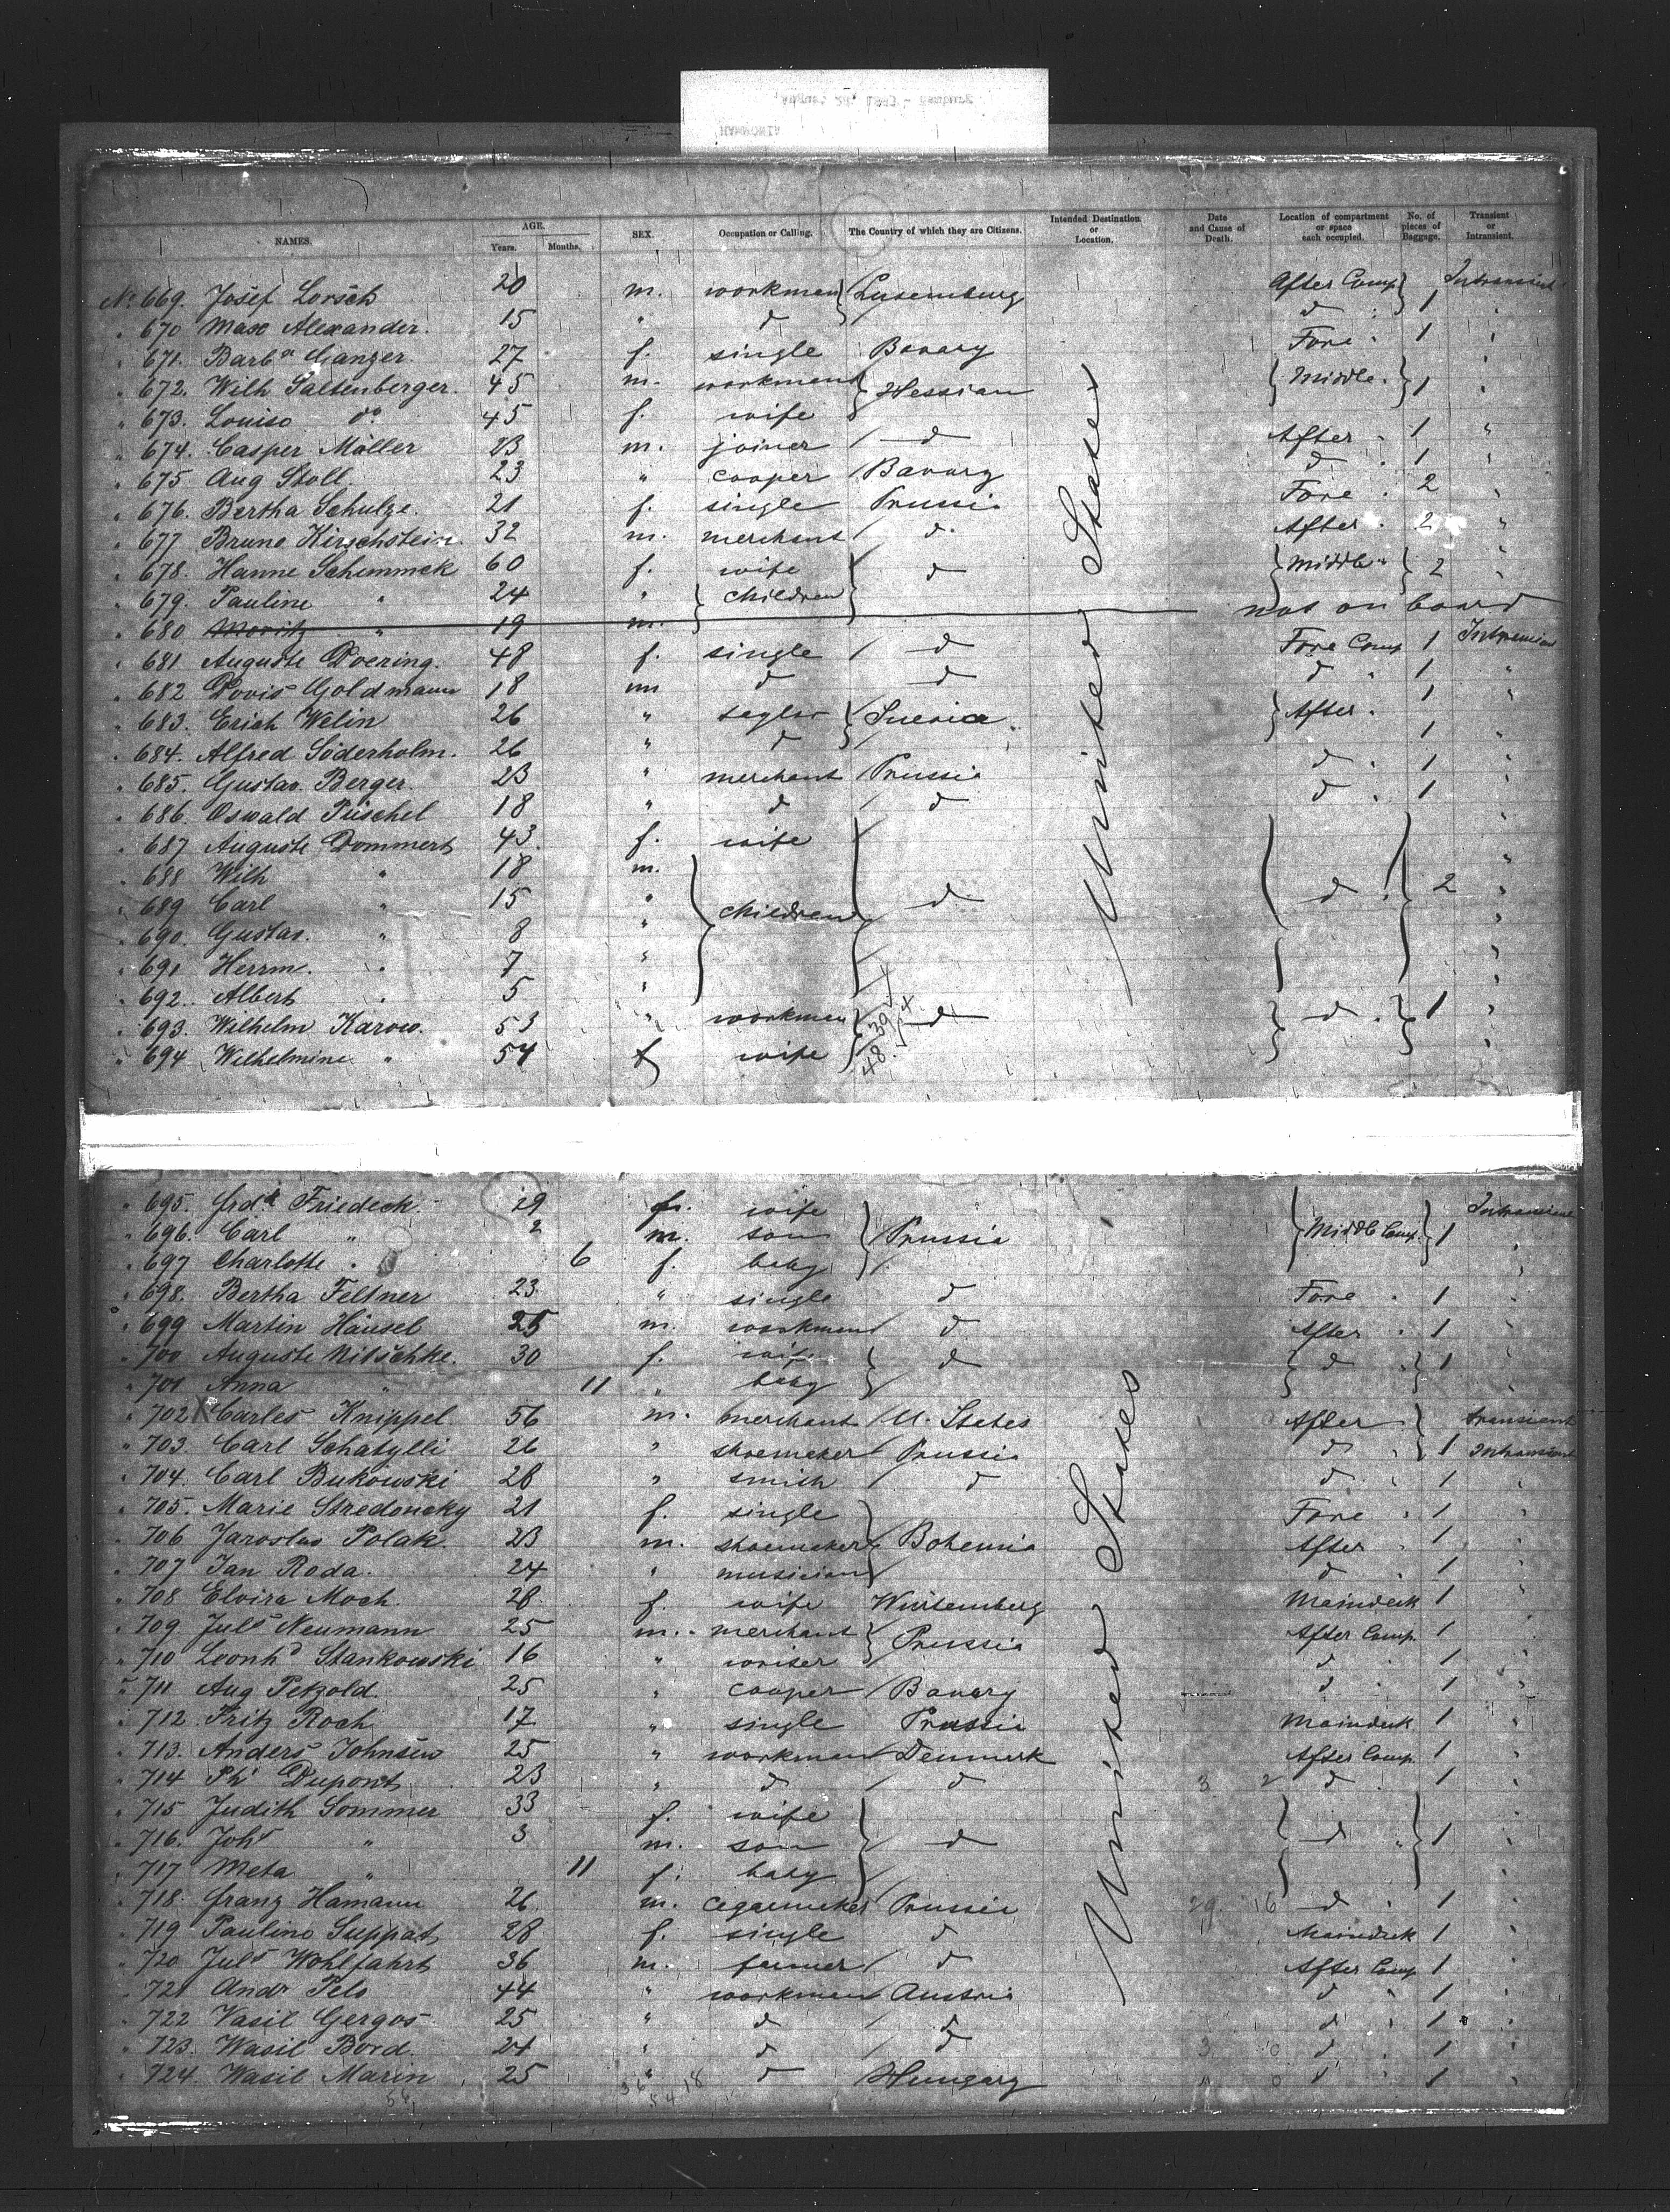 August 26, 1893 - Hamburg
HAMMONIA
NAMES. AGE. Years. Months. SEX. Occupation or Calling. The Country of which they are Citizens. Intended Destination or Location. Date and Cause of Death. Location of compartment or space each occupied. No. of pieces of Baggage. Transient or Intransient.
No. 669. Josef Lorsch 20 m. workman } Luxemburg After Comp } Intransient
" 670 Max Alexander. 15 " d d 1 "
" 671. Barba Ganzer. 27 f. single Bavary Fore " 1 "
" 672. Wilh Saltenberger. 45 m. workman } Hessian } Middle. } 1 "
" 673. Louise do 45 f. wife
" 674. Casper Möller 23 m. joiner / d After " 1 "
" 675 Aug Stoll. 23 " cooper Bavary d 1 "
" 676. Bertha Schulze. 21 f. single Prussia Fore " 2 "
" 677 Bruno Kirschstein 32 m. merchant d. After " 2 "
" 678. Hanne Schemmek 60 f. wife } d } Middle " } 2 "
" 679. Pauline " 24 " } children
" 680 Moritz " 19 m. not on board
" 681 Auguste Doering. 48 f. single / d Fore Comp 1 Intransient
" 682 Dovis Goldmann 18 m d d d " 1 "
" 683. Erich Welin 26 " } Suevia } After. 1
" 684. Alfred Söderholm. 26 " d 1 "
" 685. Gustav. Berger. 23 " merchant Prussia d " 1 "
" 686. Oswald Püschel 18 " d / d d " 1
" 687 Auguste Dommert 43. f. wife "
" 688 Wilh " 18 m. "
" 689 Carl " 15 " } children } d } d } 2 "
" 690. Gustav. " 8 " "
" 691 Herrm. " 7 " "
" 692. Albert " 5 " "
" 693. Wilhelm Karow. 53 " workman } d } d } 1 "
" 694 Wilhelmine " 54 f wife "
United States
" 695. Frdk Friedeck. 29 f. wife Intransient
" 696. Carl " 2 m. son } Prussia } Middle Comp. } 1
" 697 Charlotte " 6 f. baby "
" 698. Bertha Feltner 23. " single d Fore " 1 "
" 699 Martin Häusel 25 m. workman d After " 1 "
" 700 Auguste Nitschke. 30 f. wife } d } d } 1 "
" 701 Anna " 11 " baby "
" 702 Carles Knippel 56 m. merchant U. States After } transient
" 703. Carl Schatylli 26 " shoemaker Prussia d 1 Intransient
" 704. Carl Bukowski 28 " smith / d d " 1 "
" 705. Marie Stredoncky 21 f. single Fore " 1 "
" 706 Jaroslav Polak. 23 m. shoemaker } Bohemia After " 1 "
" 707 Jan Roda. 24 " musician d " 1 "
" 708 Elvira Moch. 28. f. wife Würtemberg Maindeck 1 "
" 709 Juls Neumann 25 m. merchant } Prussia After Comp. 1
" 710 Leonhd Stankowski 16 " writer d " 1 "
" 711 Aug Petzold. 25 " cooper / Bavary d " 1 "
" 712 Fritz Roch 17 " single Prussia Maindeck 1 "
" 713. Anders Johnsen 25 " workman Denmark After Comp. 1 "
" 714 Phi Dupont 23 " d / d d " 1 "
" 715 Judith Sommer 33 f. wife
" 716. Joht " 3 m. son } d } d } 1 "
" 717 Meta " 11 f. baby "
" 718. Franz Hamann 26 m. cigarmaker Prussia d " 1 "
" 719 Pauline Suppat 28 f. single d Maindeck 1 "
" 720 Juls Wohlfahrt 36 m. farmer / d After Comp 1 "
" 721 Andr Pelo 44 " workman Austria d " 1 "
" 722 Vasil Gergos 25 " d / d d " 1 "
" 723. Wasil Bord. 24 " d / d d " 1 "
" 724. Wasil Marin 25 " d Hungary d " 1 "
United States